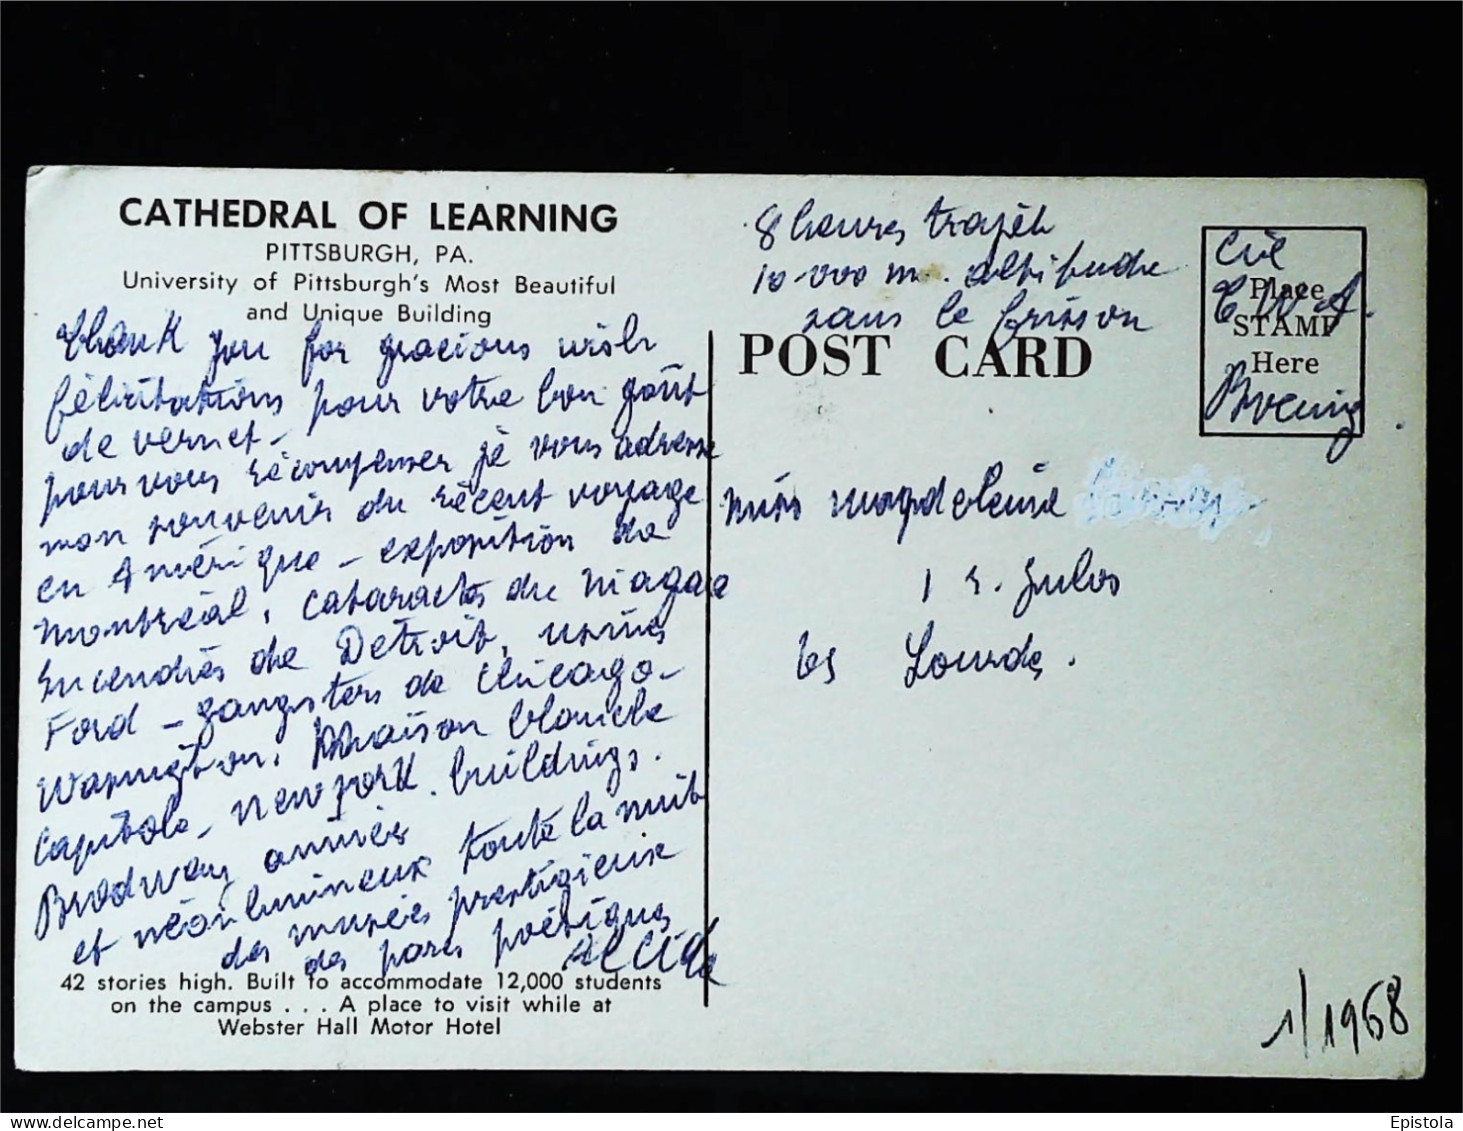 CATHEDRAL OF LEARNING
PITTSBURGH, PA.
University of Pittsburgh's Most Beautiful
and Unique Building
thank you for gracious wish
félicitations pour votre bon goût
de vernet -
pour vous récompenser je vous adresse
mon souvenir du récent voyage
en Amérique - exposition de
Montréal, cataractes du Niagara
Incendies de Detroit, usines
Ford - gangsters de Chicago -
Washington, Maison blanche
Capitole - new york buildings.
Brodway animés
et néon lumineux toute la nuit
des musées prestigieux
des parcs poétiques
42 stories high. Built to accommodate 12,000 students
on the campus . . . A place to visit while at
Webster Hall Motor Hotel
8 heures trajet
10 000 m. altitude
sans le frisson
POST CARD
Cie
T W A.
Boeing
Place
STAMP
Here
Miss magdeleine
1 r. Jules
Lourdes.
1/1968
Epistola